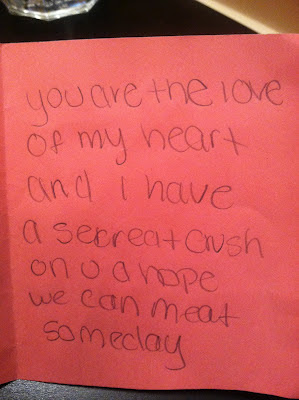 you are the love
of my heart
and I have
a secreat crush
on u a hope
we can meat
someday